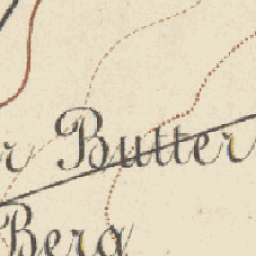 r Butter
Berg